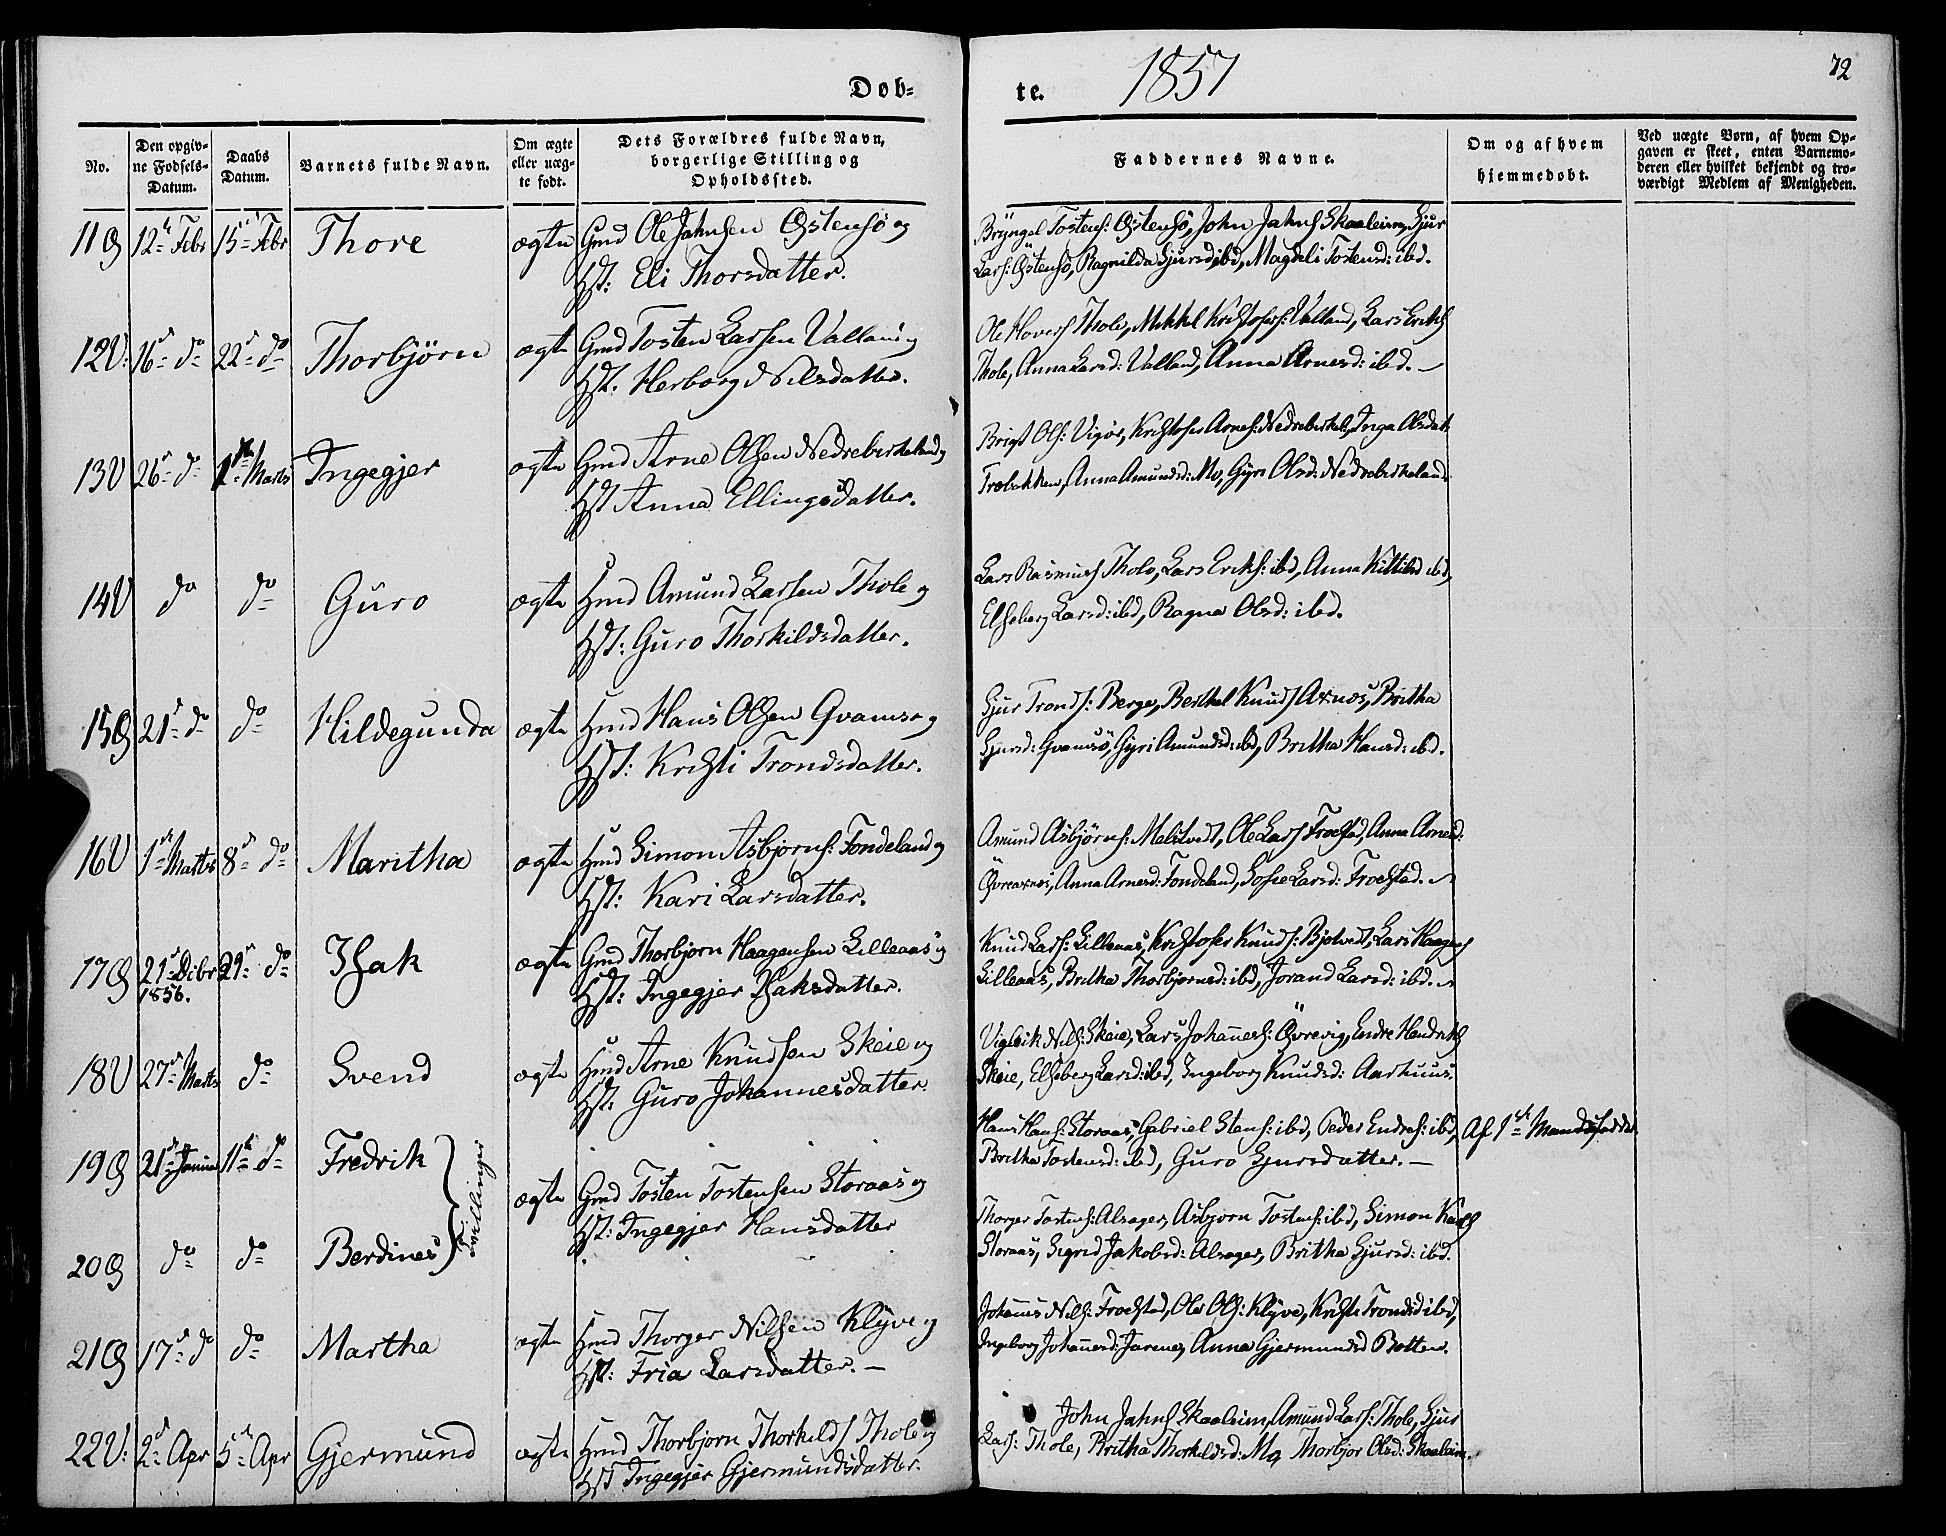 Døb-
te.
1857
72
No.
Den opgiv-
ne Fødsels-
Datum.
Daabs
Datum.
Barnets fulde Navn.
Om ægte
eller uæg-
te født.
Dets Forældres fulde Navn,
borgerlige Stilling og
Opholdssted.
Faddernes Navne.
Om og af hvem
hjemmedøbt.
Ved uægte Børn, af hvem Op-
gaven er skeet, enten Barnemo-
deren eller hvilket bekjendt og tro-
værdigt Medlem af Menigheden.
11 12te Febr 15de Febr Thore ægte Gmd Ole Jahnsen Østensø og
Hst: Eli Thorsdatter.
Bryngel Tostens: Østensø, John Jahns Skaaleim, Sjur
Lars: Østensø, Ragnilda Sjursd: ibd, Magdeli Tostensd: ibd.
12V: 16de do 22de do Thorbjørn ægte Gmd Tosten Larsen Valland og
Hst. Herborg Nilsdatter.
Ole Hovers Thole, Mikkel Kristofers: Valland, Lars Eriks
Thole, Anna Larsd: Valland, Anna Arnesd: ibd. –
13V 26de do 1ste Marts Ingegjer ægte Gmd Arne Olsen Nedrebirkeland og
Hst Anna Ellingsdatter.
Brigt Ols: Vigør, Kristofer Arnes: Nedrebirkel, Inga Olsdat
Træbakken, Anna Amundsd: Mo, Gyri Olsd: Nedrebirkeland
14V do do Guro ægte Hmd Amund Larsen Thole og
Hst: Guro Thorkildsdatter.
Lars Rasmus Thole, Lars Eriks: ibd, Anna Kittilsd ibd,
Elseberg Larsd: ibd, Ragna Olsd: ibd.
15 21de do do Hildegunda ægte Hmd Hans Olsen Qvamsø og
Hst: Kristi Trondsdatter.
Sjur Tronds: Berge, Berthel Knuds Axnæs, Britha
Sjursd: Qvamsø, Gyri Amundsd: ibd, Britha Hansd: ibd.
16V 1ste Marts 8de do Maritha ægte Hmd Simon Asbjørns: Tondeland og
Hst: Kari Larsdatter.
Amund Asbjørns: Melstvedt, Ole Lars Froestad, Anna Arnesd:
Øvreaxnes, Anna Arnesd: Tondeland, Sofie Larsd: Froestad.
17 21de Dcbr 29de do Isak ægte Gmd Thorbjørn Haagensen Lilleaas og
1856.
Hst: Ingegjer Isaksdatter.
Knud Lars: Lilleaas, Kristofer Knuds: Bjotvedt, Lars Haagens
Lilleaas, Britha Thorbjørnsd: ibd, Jorand Larsd: ibd.
18V 27de Marts do Svend ægte Hmd Arne Knudsen Skeie og
Hst: Guro Johannesdatter.
Vigleik Nils: Skeie, Lars Johannes: Øvrevig, Endre Hendriks
Skeie, Elseberg Larsd: ibd, Ingeborg Knudsd: Aarhuus.
19 21de Januar 11te do Fredrik
Hans Hans: Storaas, Gabriel Stens: ibd, Peder Endres: ibd, Af 1ste Mandsfadder
Britha Tostensd: ibd, Guro Sjursdatter. –
Tvillinger
ægte Gmd Tosten Tostensen Storaas og
Hst: Ingegjer Hansdatter
20 do do Berdines
Thorger Tostens: Alsager, Asbjørn Tostens: ibd, Simon
Storaas, Sigrid Jakobsd: Alsager, Britha Sjursd: ibd.
21 17de do do Martha ægte Hmd Thorger Nilsen Klyve og
Hst: Fria Larsdatter. –
Johannes Nils: Froestad, Ole Ols: Klyve, Kristi Trondsd ibd,
Ingeborg Johannesd: Anna Gjermundsd Botten.
22V: 2den Apr 5te Apr Gjermund ægte Hmd Thorbjørn Thorkilds Thole og
Hst Ingegjer Gjermundsdatter.
John Jahns Skaaleim, Amund Lars: Thole, Sjur
Lars: Thole, Britha Thorkildsd: Mo, Thorbjør Olsd: Skaaleim.